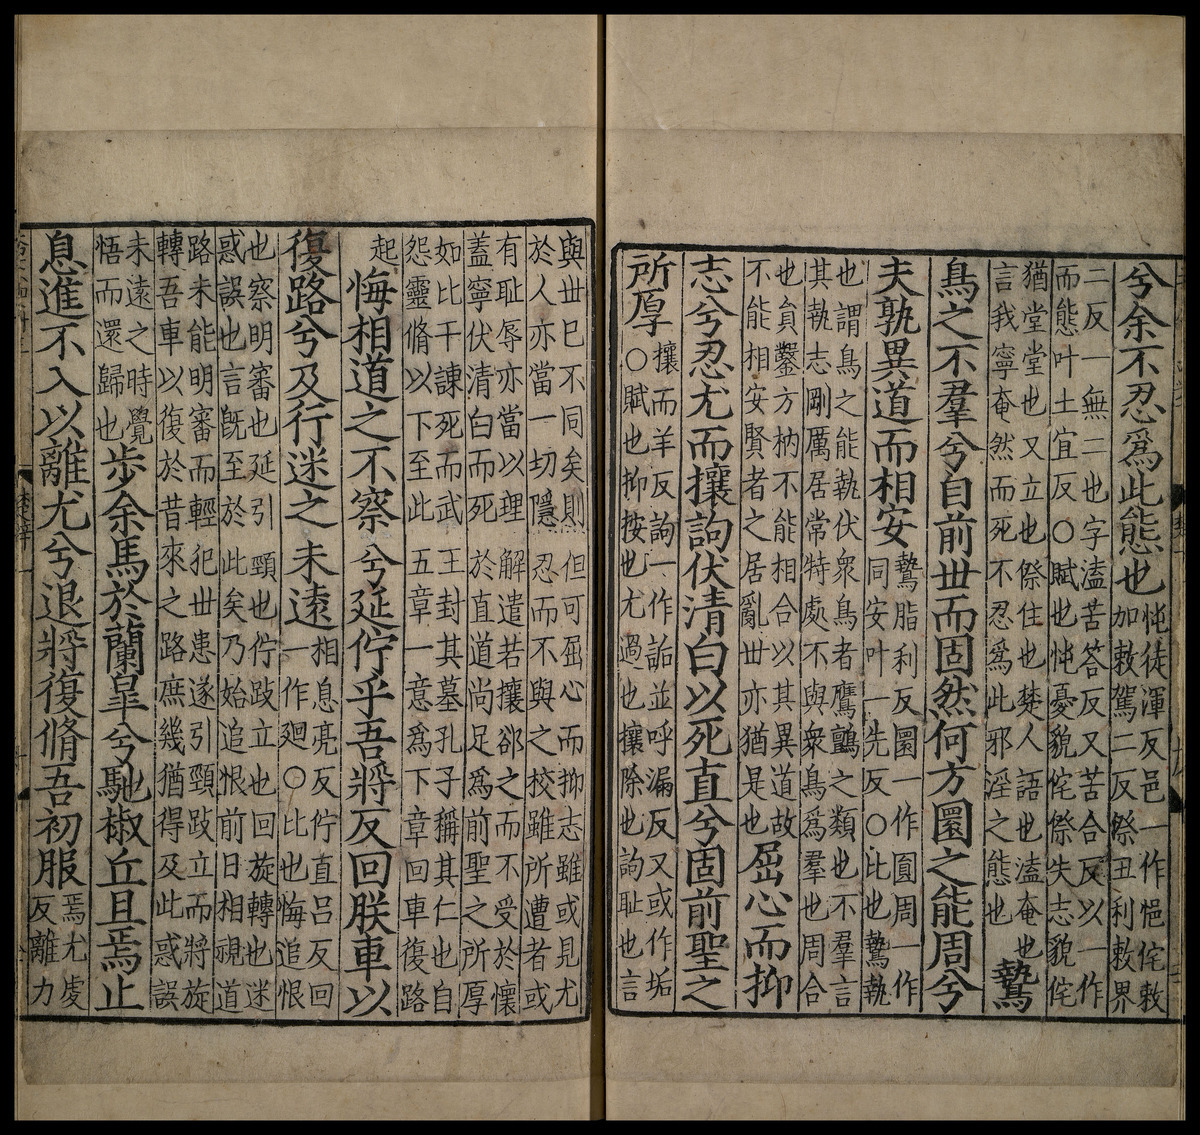 兮余不忍爲此態也
忳徒渾反邑一作悒侘敕
加敕駕二反傺丑利敕界
二反一無二也字溘苦答反又苦合反以一作
而態叶土宜反○賦也忳憂貌侘傺失志貌侘
猶堂堂也又立也傺住也楚人語也溘奄也
言我寧奄然而死不忍爲此邪淫之態也
鷙
鳥之不羣兮自前丗而固然何方圜之能周兮
夫孰異道而相安
鷙脂利反圜一作圓周一作
同安叶一先反○比也鷙執
也謂鳥之能執伏衆鳥者鷹鸇之類也不羣言
其執志剛厲居常特處不與衆鳥爲羣也周合
也負鑿方枘不能相合以其異道故
不能相安賢者之居亂丗亦猶是也
屈心而抑
志兮忍尤而攘訽伏清白以死直兮固前聖之
所厚
攘而羊反訽一作詬並呼漏反又或作垢
○賦也抑按也尤過也攘除也訽耻也言
與丗已不同矣則但可屈心而抑志雖或見尤
於人亦當一切隱忍而不與之校雖所遭者或
有耻辱亦當以理解遣若攘郤之而不受於懷
蓋寧伏清白而死於直道尚足爲前聖之所厚
如比干諫死而武王封其墓孔子稱其仁也自
怨靈脩以下至此五章一意爲下章回車復路
起
悔相道之不察兮延佇乎吾將反回朕車以
復路兮及行迷之未遠
相息亮反佇直呂反回
一作廻○比也悔追恨
也察明審也延引頸也佇跂立也回旋轉也迷
惑誤也言旣至於此矣乃始追恨前日相視道
路未能明審而輕犯丗患遂引頸跂立而將旋
轉吾車以復於昔來之路庶幾猶得及此惑誤
未遠之時覺
悟而還歸也
步余馬於蘭皐兮馳椒丘且焉止
息進不入以離尤兮退將復脩吾初服
焉尤虔
反離力